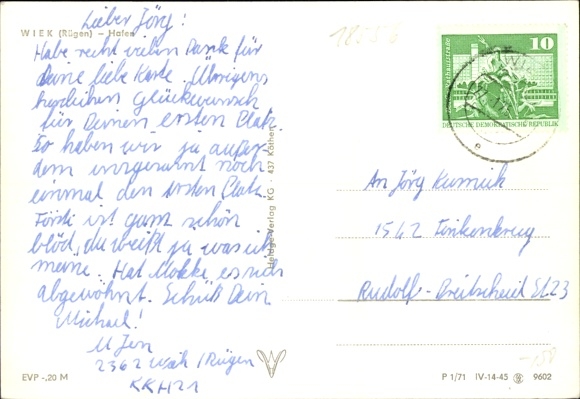 WIEK (Rügen) – Hafen
Lieber Jörg!
Habe recht vielen Dank für
Deine liebe Karte. Übrigens
herzlichen Glückwunsch
für Deinen ersten Platz.
So haben wir ja außer-
dem insgesamt noch
einmal den ersten Platz
ist ganz schön
blöd, du weißt ja was ich
meine. Hat Mokke es sich
abgewöhnt. Schüß Dein
Michael!
M Jen
2362 Wiek / Rügen
KKH21
EVP -,20 M
Heldge-Verlag KG · 437 Köthen
10
DEUTSCHE DEMOKRATISCHE REPUBLIK
An Jörg
1542 Finkenkrug
Rudolf-Breitscheid St 23
P 1/71 IV-14-45 9602